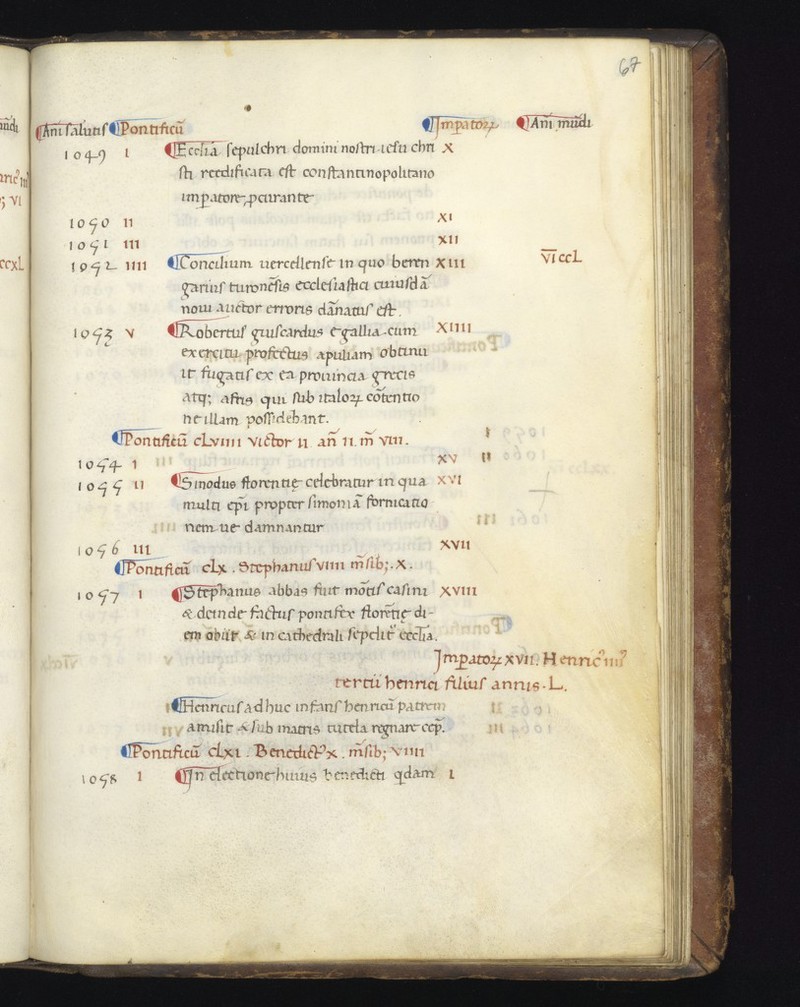 67
Ani salutis Pontificũ Imꝑatoꝝ Ani mũdi
1049 I Ecclia sepulchri domini nostri iesu chri X
sti reedificata est constantinopolitano
imꝑatore ꝓcurante
1050 II XI
1051 III XII
1052 IIII Concilium uercellense in quo beren XIII VI ccL
garius turonẽsis ecclesiastici cuiusdã
noui auctor erroris dãnatus est.
1053 V Robertus giuscardus e gallia cum XIIII
exercitu profectus apuliam obtinu
it fugatis ex ea prouincia grecis
atq; afris qui sub italoꝝ cõtentio
ne illam possidebant.
Pontificũ cLVIIII Victor II an̄ II m̄ VIII.
1054 I XV
1055 II Sinodus florentię celebratur in qua XVI
multi ep̃i propter simoniã fornicatio
nem ue damnantur
1056 III XVII
Pontificũ cLX . Stephanus VIIII m̃sib; . X .
1057 I Stephanus abbas fuit mõtis casini XVIII
& deinde factus pontifex florẽtię di-
em obiit & in cathedrali sepelit̃ ecclia.
Imꝑatoꝝ XVII. Henric᾽ IIII᾽
tertii henrici filius annis . L.
Henricus adhuc infans henricũ patrem
amisit & sub matris tutela regnare cep̃.
Pontificũ cLXI . Benedict᾽ X . m̃sib; VIIII
1058 I In electione huius benedicti q̃dam I